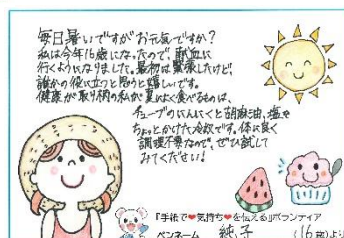 毎日暑いですがお元気ですか?
私は今年16歳になったので、献血に
行くようになりました。最初は緊張したけど、
誰かの役に立つと思うと嬉しいです。
健康が取り柄の私が夏によく食べるものは、
チューブのにんにくと胡麻油、塩を
ちょっとかけた冷奴です。体に良く
調理不要なので、ぜひ試して
みてください!
「手絵で❤気持ち❤を伝える」ボランティア
ペンネーム 純子 (16歳)より